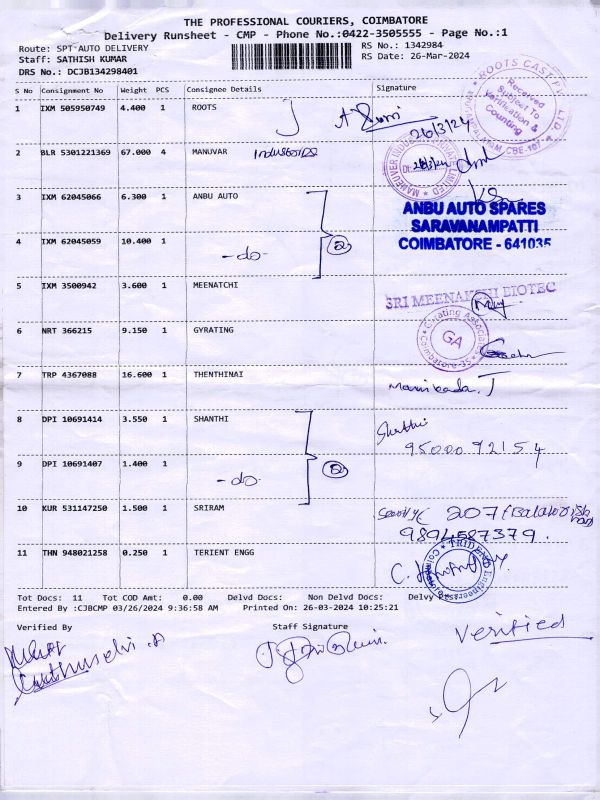 THE PROFESSIONAL COURIERS, COIMBATORE
Delivery Runsheet - CMP - Phone No.:0422-3505555 - Page No.:1
Route: SPT-AUTO DELIVERY
Staff: SATHISH KUMAR
DRS No.: DCJB134298401
RS No.: 1342984
RS Date: 26-Mar-2024
S No Consignment No Weight PCS Consignee Details Signature
1 IXM 505950749 4.400 1 ROOTS
26/3/24
ROOTS CAST PVT LTD
Received
Subject To
Verification &
Counting
2 BLR 5301221369 67.000 4 MANUVAR Industries
3 IXM 62045066 6.300 1 ANBU AUTO
ANBU AUTO SPARES
SARAVANAMPATTI
COIMBATORE - 641035
4 IXM 62045059 10.400 1 -do- 2
5 IXM 3500942 3.600 1 MEENATCHI
SRI MEENAKSHI BIOTEC
6 NRT 366215 9.150 1 GYRATING
Gyrating Associates
GA
7 TRP 4367088 16.600 1 THENTHINAI
8 DPI 10691414 3.550 1 SHANTHI
Shanthi
9500092154
9 DPI 10691407 1.400 1 -do- 2
10 KUR 531147250 1.500 1 SRIRAM
207
9894587379.
11 THN 948021258 0.250 1 TERIENT ENGG
TRIDENT Engineers
Tot Docs: 11 Tot COD Amt: 0.00 Delvd Docs: Non Delvd Docs: Delvy
Entered By :CJBCMP 03/26/2024 9:36:58 AM Printed On: 26-03-2024 10:25:21
Verified By
Staff Signature
Verified